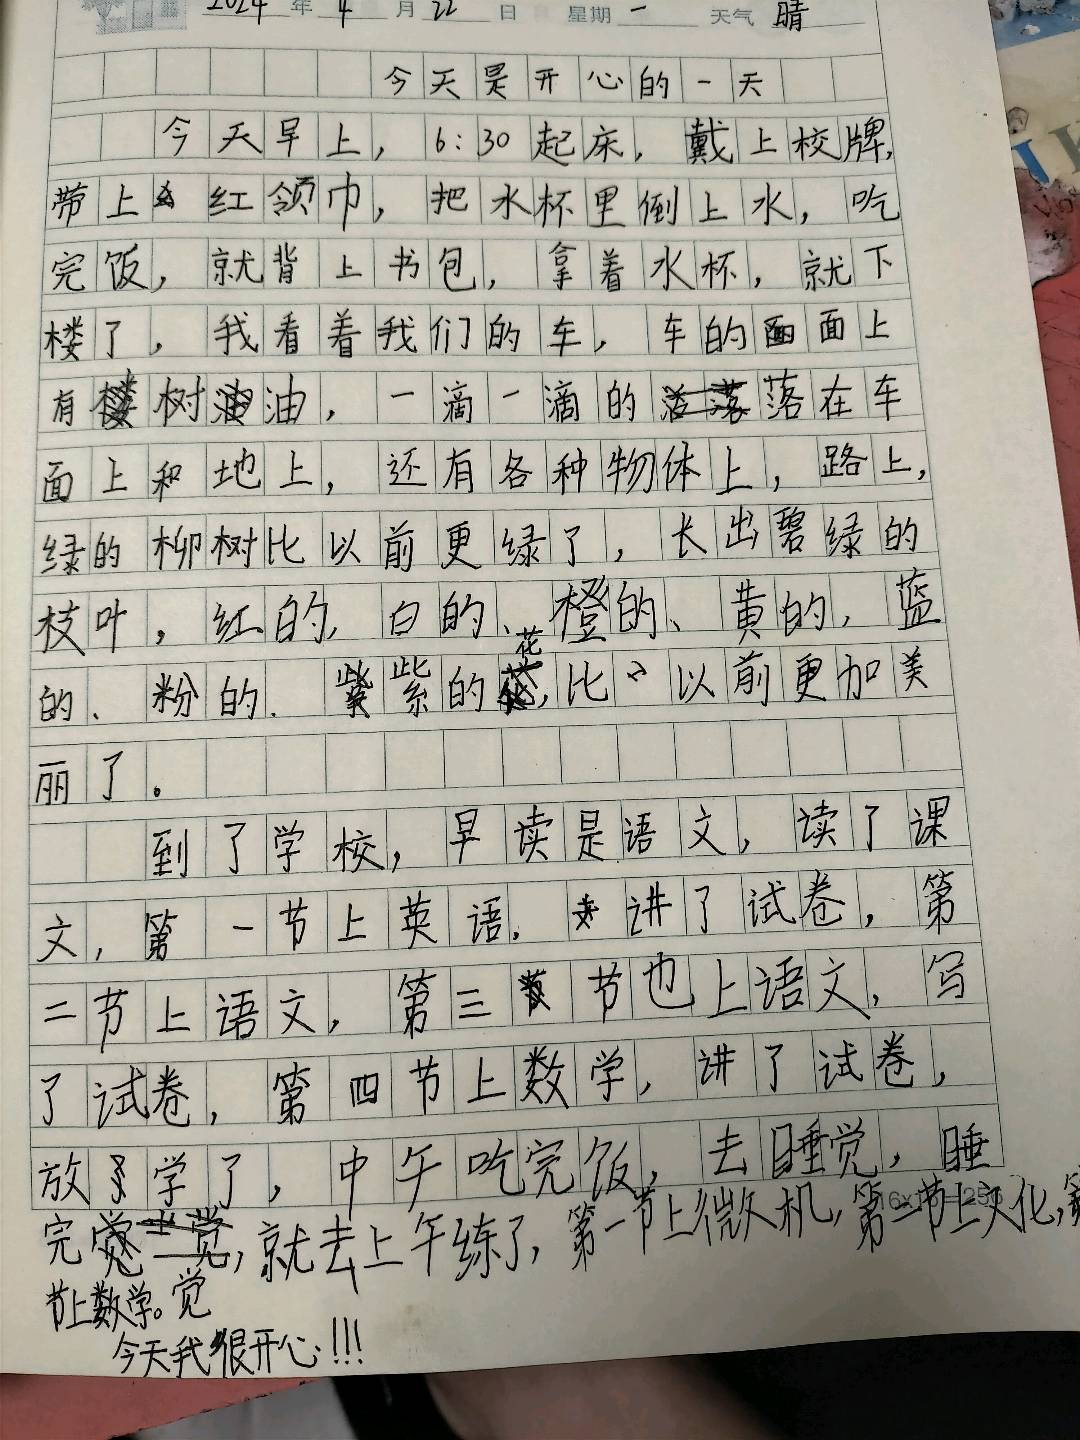 2024 年 4 月 22 日 星期 一 天气 晴
今天是开心的一天
今天早上，6:30起床，戴上校牌，
带上红领巾，把水杯里倒上水，吃
完饭，就背上书包，拿着水杯，就下
楼了，我看着我们的车，车的面上
有树油，一滴一滴的落在车
面上和地上，还有各种物体上，路上，
绿的柳树比以前更绿了，长出碧绿的
枝叶，红的，白的、橙的、黄的，蓝
的、粉的、紫的花，比以前更加美
丽了。
到了学校，早读是语文，读了课
文，第一节上英语，讲了试卷，第
二节上语文，第三节也上语文，写
了试卷，第四节上数学，讲了试卷，
放学了，中午吃完饭，去睡觉，睡
完觉，就去上午练了，第一节上微机，第二节上文化，第
节上数学。
今天我很开心!!!